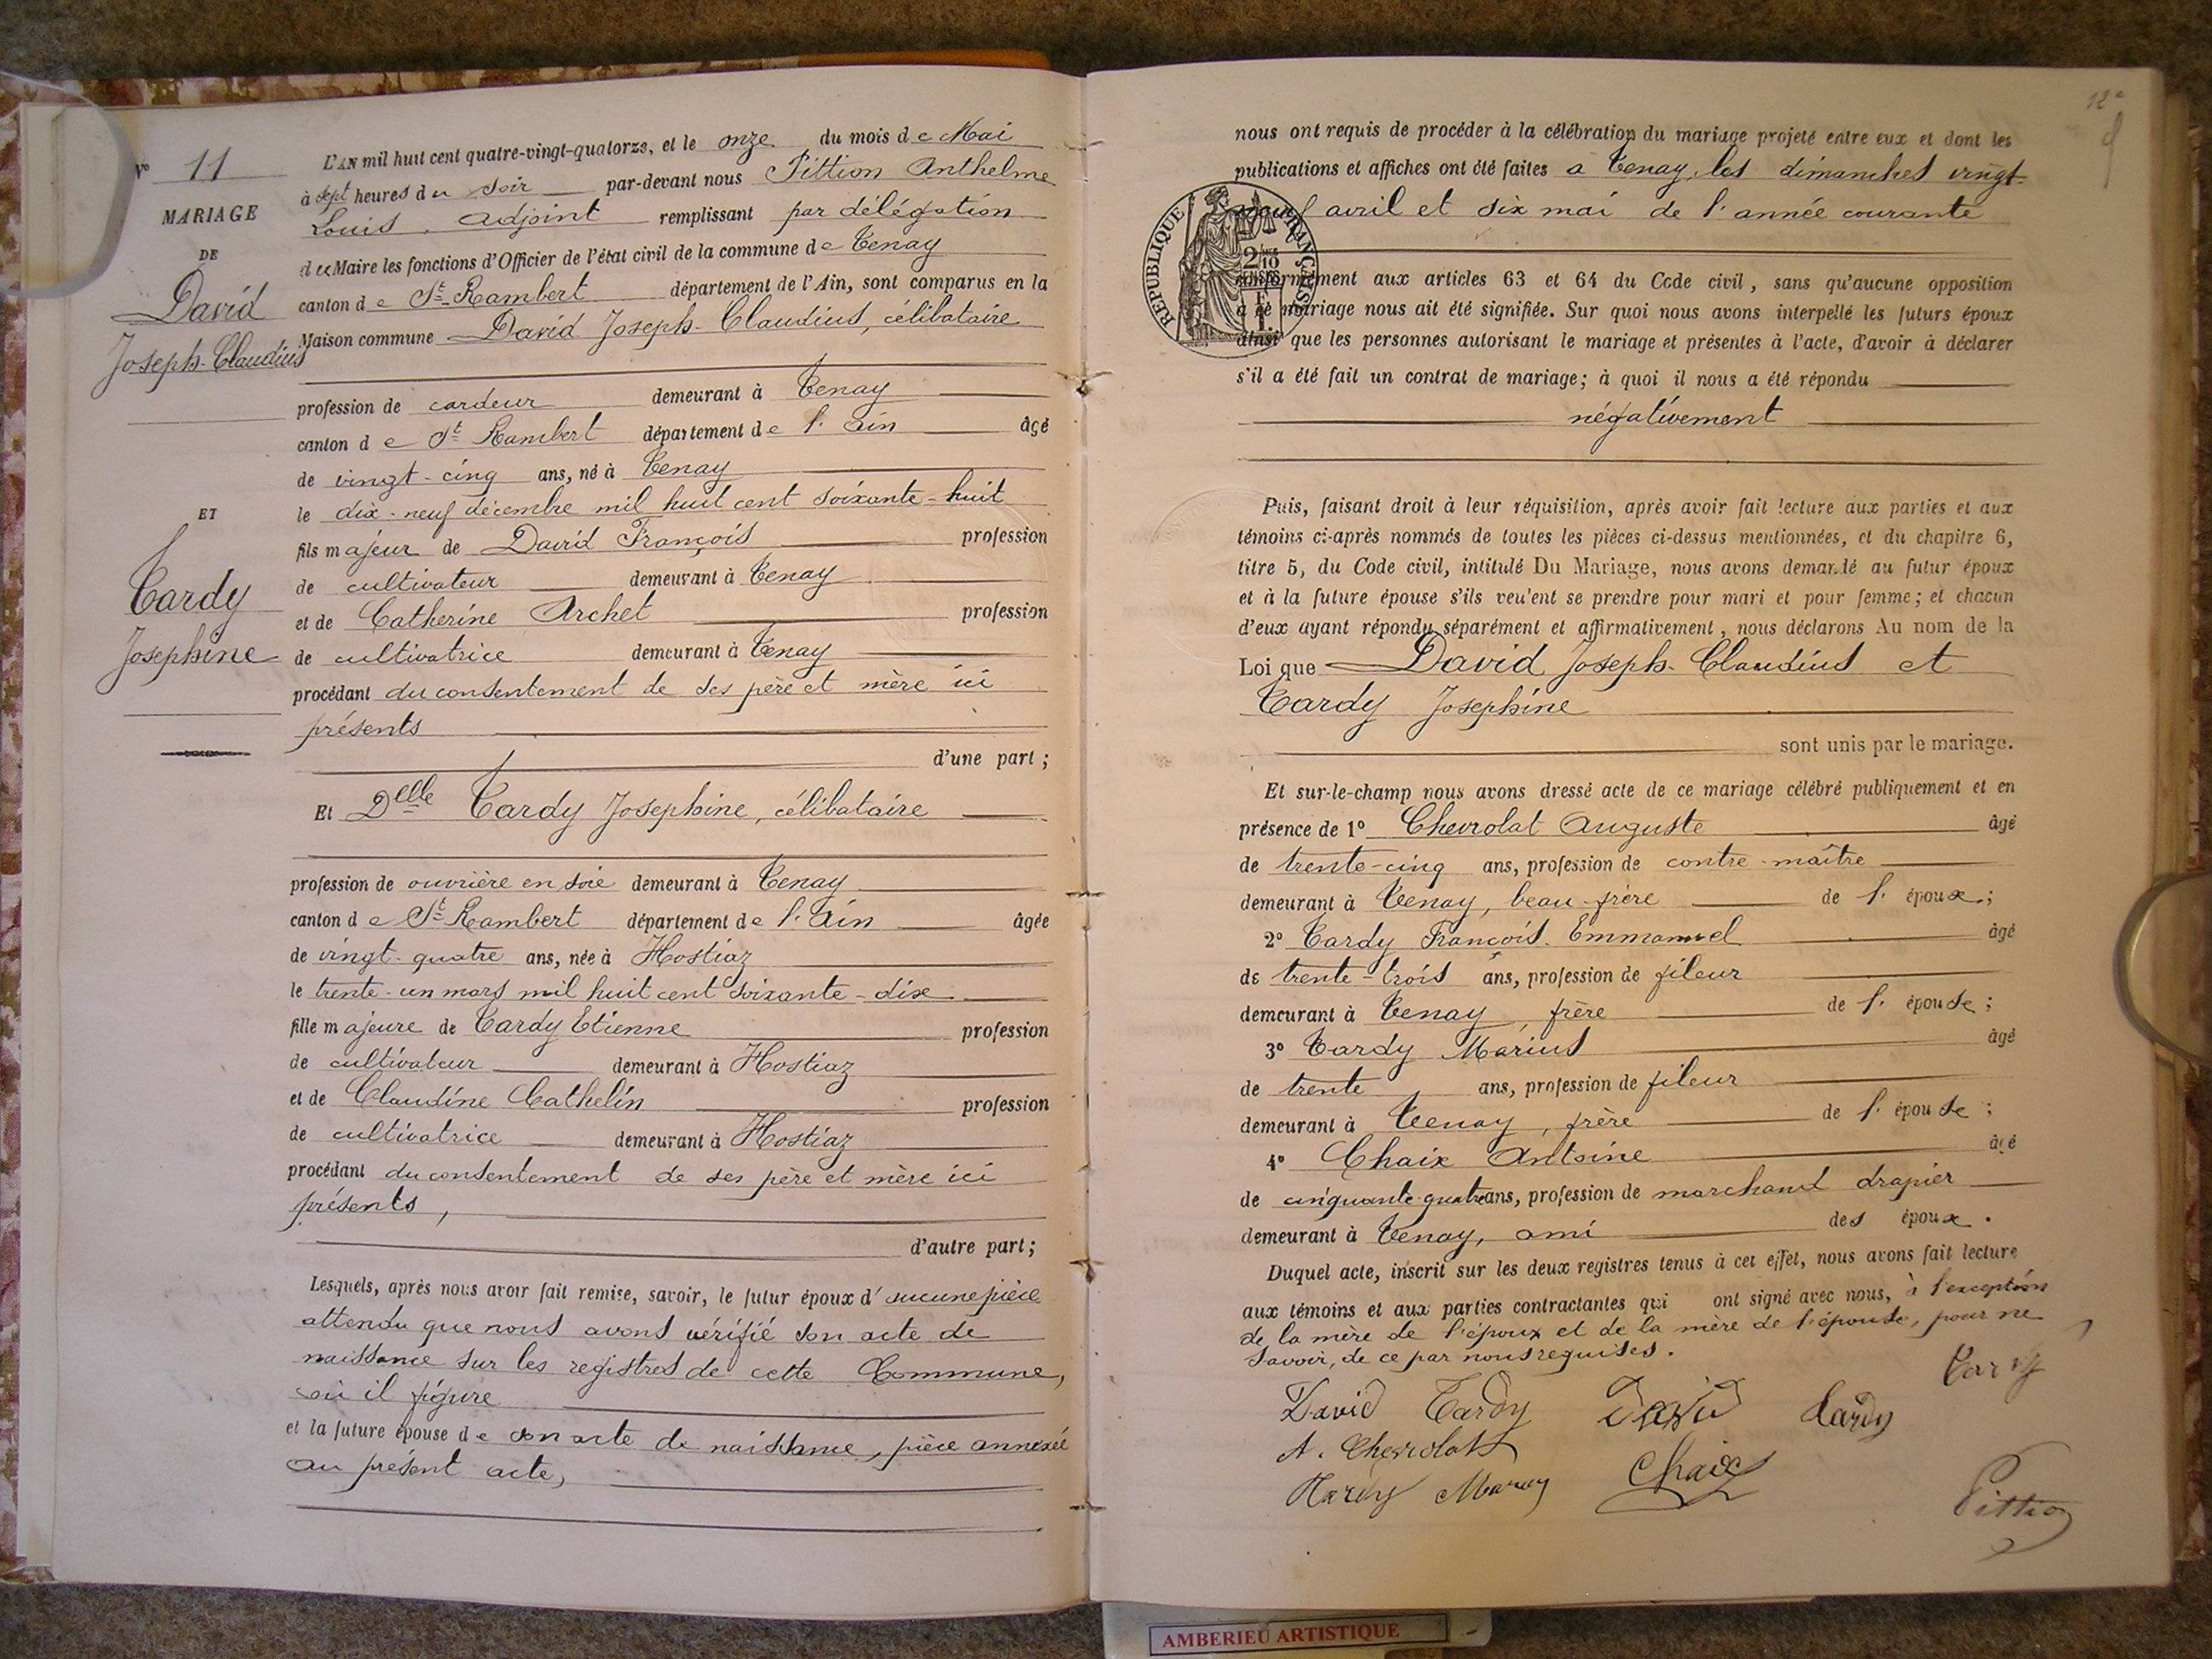 N° 11
MARIAGE
DE
David
Joseph-Claudius
ET
Tardy
Josephine
L'AN mil huit cent quatre-vingt-quatorze, et le onze du mois de Mai
à sept heures du soir par-devant nous Pittion Anthelme
Louis, adjoint remplissant par délégation
du Maire les fonctions d'Officier de l'état civil de la commune de Tenay
canton de St-Rambert département de l'Ain, sont comparus en la
Maison commune David Joseph-Claudius, célibataire
profession de cardeur demeurant à Tenay
canton de St Rambert département de l'Ain âgé
de vingt-cinq ans, né à Tenay
le dix-neuf décembre mil huit cent soixante-huit
fils majeur de David François profession
de cultivateur demeurant à Tenay
et de Catherine Archet profession
de cultivatrice demeurant à Tenay
procédant du consentement de ses père et mère ici
présents
d'une part ;
Et Delle Tardy Josephine, célibataire
profession de ouvrière en soie demeurant à Tenay
canton de St-Rambert département de l'Ain âgée
de vingt-quatre ans, née à Hostiaz
le trente-un mars mil huit cent soixante-dix
fille majeure de Tardy Etienne profession
de cultivateur demeurant à Hostiaz
et de Claudine Cathelin profession
de cultivatrice demeurant à Hostiaz
procédant du consentement de ses père et mère ici
présents,
d'autre part ;
Lesquels, après nous avoir fait remise, savoir, le futur époux d'aucune pièce
attendu que nous avons vérifié son acte de
naissance sur les registres de cette Commune,
où il figure
et la future épouse de son acte de naissance, pièce annexée
au présent acte,
12e
nous ont requis de procéder à la célébration du mariage projeté entre eux et dont les
publications et affiches ont été faites a Tenay, les dimanches vingt-
neuf avril et six mai de l'année courante
REPUBLIQUE FRANÇAISE
conformément aux articles 63 et 64 du Code civil, sans qu'aucune opposition
à ce mariage nous ait été signifiée. Sur quoi nous avons interpellé les futurs époux
ainsi que les personnes autorisant le mariage et présentes à l'acte, d'avoir à déclarer
s'il a été fait un contrat de mariage; à quoi il nous a été répondu
négativement
Puis, faisant droit à leur réquisition, après avoir fait lecture aux parties et aux
témoins ci-après nommés de toutes les pièces ci-dessus mentionnées, et du chapitre 6,
titre 5, du Code civil, intitulé Du Mariage, nous avons demandé au futur époux
et à la future épouse s'ils veulent se prendre pour mari et pour femme; et chacun
d'eux ayant répondu séparément et affirmativement, nous déclarons Au nom de la
Loi que David Joseph-Claudius et
Tardy Josephine
sont unis par le mariage.
Et sur-le-champ nous avons dressé acte de ce mariage célébré publiquement et en
présence de 1° Chevrolat Auguste âgé
de trente-cinq ans, profession de contre-maître
demeurant à Tenay, beau-frère de l'époux;
2° Tardy François-Emmanuel âgé
de trente-trois ans, profession de fileur
demeurant à Tenay, frère de l'épouse ;
3° Tardy Marius âgé
de trente ans, profession de fileur
demeurant à Tenay, frère de l'épouse ;
4° Chaix Antoine âgé
de cinquante-quatre ans, profession de marchand drapier
demeurant à Tenay, ami des époux.
Duquel acte, inscrit sur les deux registres tenus à cet effet, nous avons fait lecture
aux témoins et aux parties contractantes qui ont signé avec nous, à l'exception
de la mère de l'époux et de la mère de l'épouse, pour ne
savoir, de ce par nous requises.
Tardy
David Tardy David Tardy
A. Chevrolat
Chaix
Tardy
Pittion
AMBERIEU ARTISTIQUE